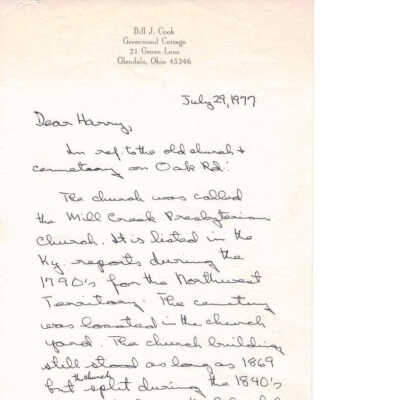 Bill J. Cook
Greenwood Cottage
21 Grove Lane
Glendale, Ohio 45246
July 29, 1977
Dear Harry,
In ref to the old church &
cemetery on Oak Rd:
The church was called
the Mill Creek Presbyterian
Church. It is listed in the
Ky. reports during the
1790's for the Northwest
Territory. The cemetery
was located in the church
yard. The church building
still stood as long as 1869
but the church split during the 1840's